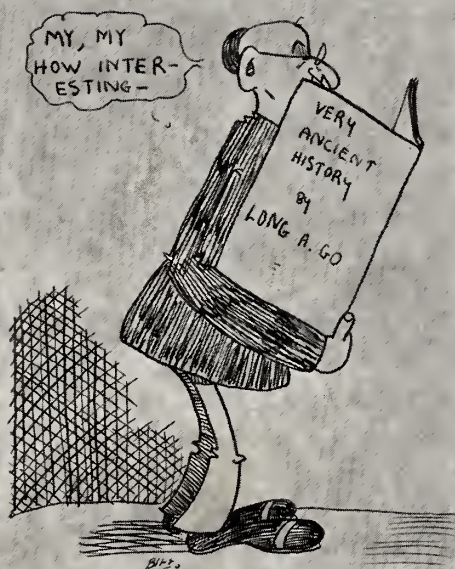 MY, MY
HOW INTER-
ESTING-
VERY
ANCIENT
HISTORY
BY
LONG A. GO